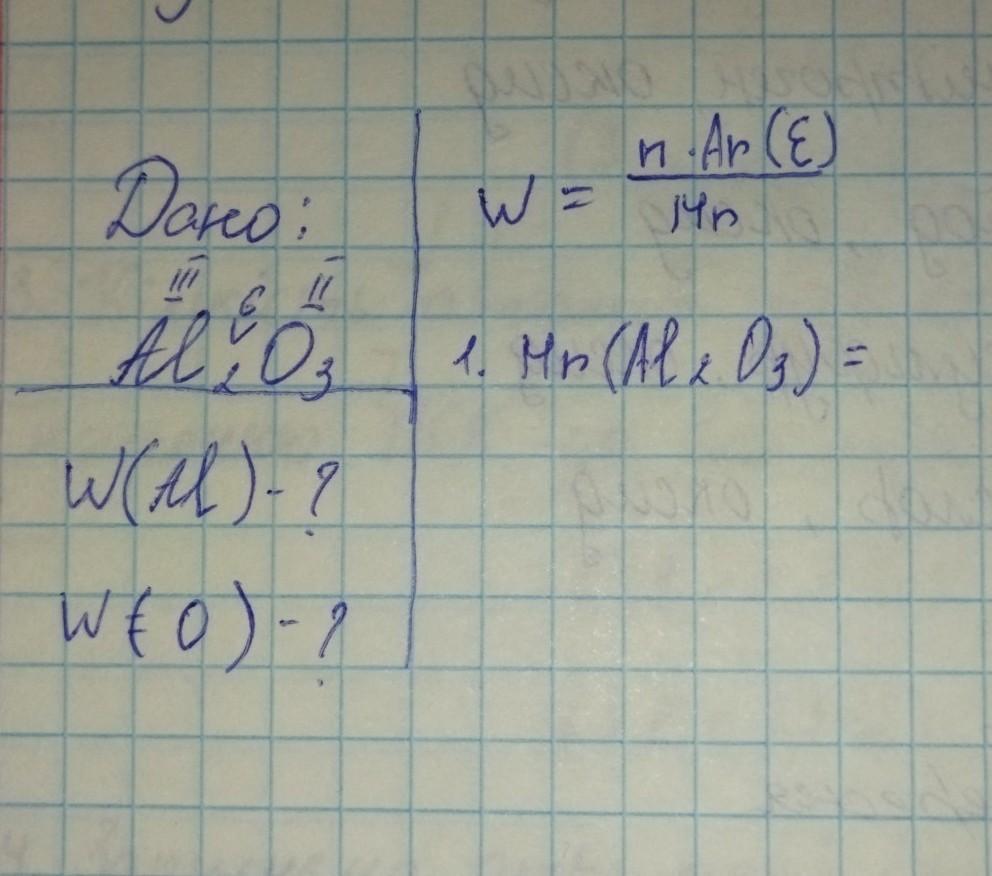 Дано:
III 6 II
Al₂O₃
W(Al) - ?
W(O) - ?
W = n · Ar(Э) / Mr
1. Mr(Al₂O₃) =